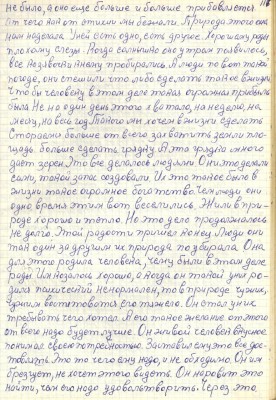 не было, а оно еще больше и больше прибавляется.
От чего нам от этого мы бежали. А Природа этого сама
нам наделала. У ней есть одно, есть другое. Хорошему рядом
плохому следы. Когда солнышко оно утром появилось,
все Незаконно к нему пробирались. А люди по вот такой
погоде, они спешили что либо сделать такое в жизни
Чтобы человеку в этом деле такая огромная прибыль
была. Не на один день этого хватало, на неделю, на
месяц, на весь год. Такого мы хочем в жизни сделать
Стараемся больше от всего захватить земли пло-
щадь больше сделать грядку. А эта грядка много
дает зерен. Это все делалось людьми Они это делали
сами, такой запас создавали. Их это такое было в
жизни такое огромное богатство. Чем люди они
одно время этим вот веселились. Жили в при-
роде хорошо и тепло. Но это дело продолжалось
не долго. Этой радости пришел конец. Люди они
так один за другим их природа поубирала. Она
для этого родила человека, чему были в этом деле
рады. Им казалось хорошо, а когда он такой уже ро-
дился психический ненормален, то в природе чужих,
чужим воспитывать его тяжело. Он стал у них
требовать чего хотел. А его такое желание от этого
от всего надо будет лучше. Он живой человек вкусное
понимал свою потребностью. Заставил ему это все дос-
тавлять. Это то чего ему надо, и не обходимо. Он им
брезгует, не хочет этого видеть. Он норовит это
найти, чем его надо удовлетворить. Через это